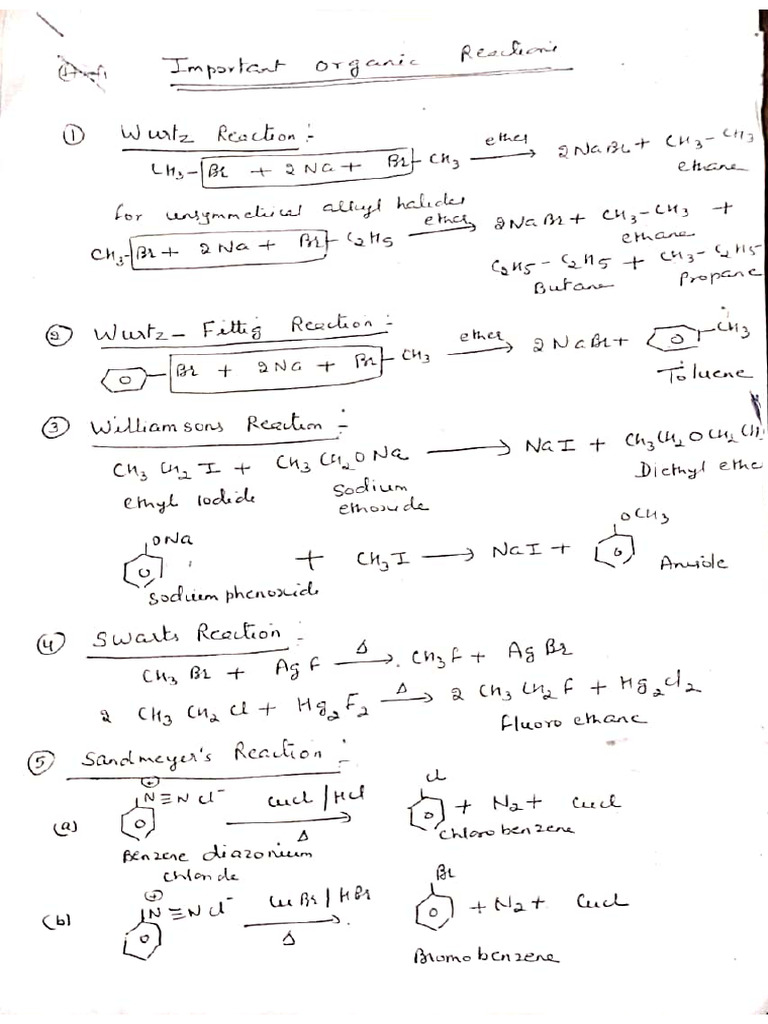 Important Organic Reactions
① Wurtz Reaction :-
CH3-Br + 2Na + Br-CH3 ether→ 2NaBr + CH3-CH3
ethane
for unsymmetrical alkyl halides
CH3-Br + 2Na + Br-C2H5 ether→ 2NaBr + CH3-CH3 +
ethane
C2H5-C2H5 + CH3-C2H5
Butane Propane
② Wurtz-Fittig Reaction :-
Br + 2Na + Br-CH3 ether→ 2NaBr + CH3
Toluene
③ Williamsons Reaction :-
CH3CH2I + CH3CH2ONa → NaI + CH3CH2OCH2CH
ethyl Iodide Sodium ethoxide Diethyl ethe
ONa + CH3I → NaI + OCH3
Sodium phenoxide Anisole
④ Swarts Reaction :-
CH3Br + AgF Δ→ CH3F + AgBr
2 CH3CH2Cl + Hg2F2 Δ→ 2 CH3CH2F + Hg2Cl2
Fluoro ethane
⑤ Sandmeyer's Reaction :-
(a) ⊕N≡NCl- CuCl/HCl Δ→ Cl + N2 + CuCl
Benzene diazonium chloride Chlorobenzene
(b) ⊕N≡NCl- CuBr/HBr Δ→ Br + N2 + CuCl
Bromobenzene